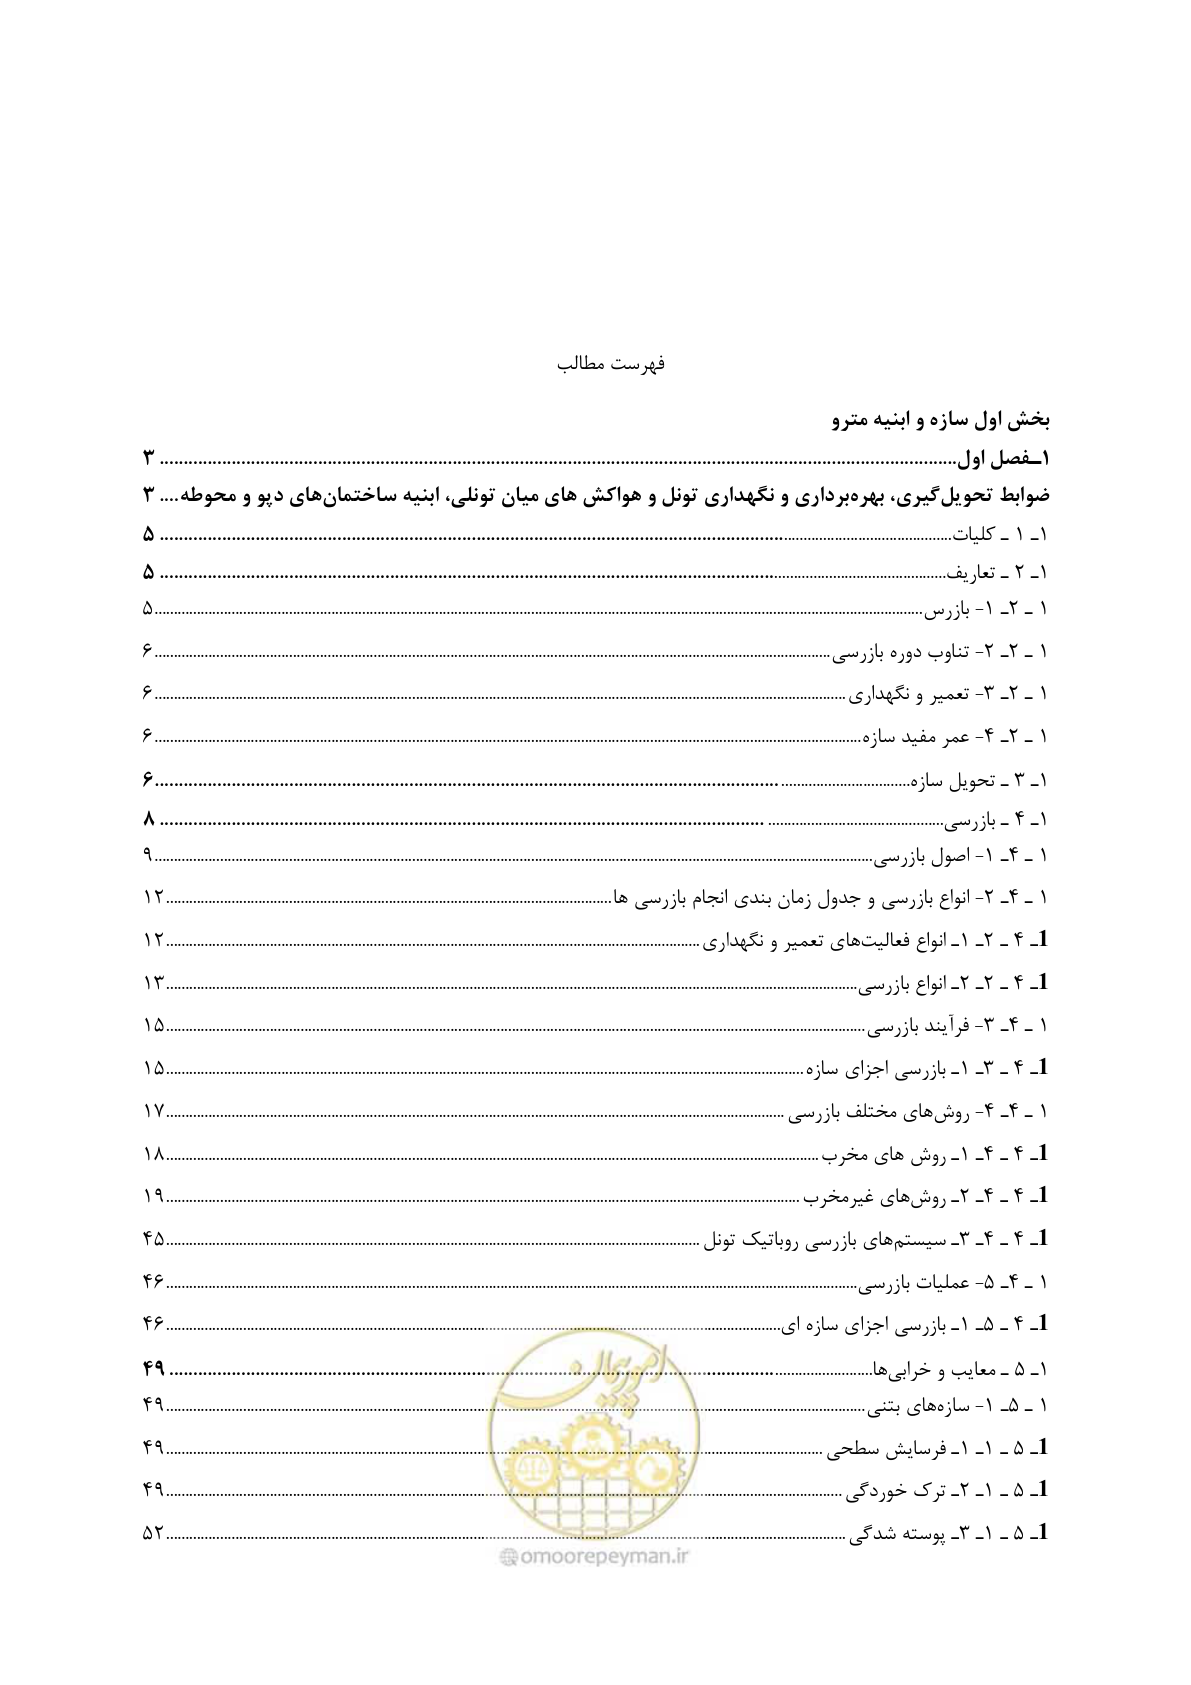 فهرست مطالب
بخش اول سازه و ابنیه مترو
۱ـفصل اول ... ۳
ضوابط تحویل‌گیری، بهره‌برداری و نگهداری تونل و هواکش های میان تونلی، ابنیه ساختمان‌های دپو و محوطه .... ۳
۱ـ ۱ ـ کلیات ... ۵
۱ـ ۲ ـ تعاریف ... ۵
۱ ـ ۲ـ ۱- بازرس ... ۵
۱ ـ ۲ـ ۲- تناوب دوره بازرسی ... ۶
۱ ـ ۲ـ ۳- تعمیر و نگهداری ... ۶
۱ ـ ۲ـ ۴- عمر مفید سازه ... ۶
۱ـ ۳ ـ تحویل سازه ... ۶
۱ـ ۴ ـ بازرسی ... ۸
۱ ـ ۴ـ ۱- اصول بازرسی ... ۹
۱ ـ ۴ـ ۲- انواع بازرسی و جدول زمان بندی انجام بازرسی ها ... ۱۲
1ـ ۴ ـ ۲ـ ۱ـ انواع فعالیت‌های تعمیر و نگهداری ... ۱۲
1ـ ۴ ـ ۲ـ ۲ـ انواع بازرسی ... ۱۳
۱ ـ ۴ـ ۳- فرآیند بازرسی ... ۱۵
1ـ ۴ ـ ۳ـ ۱ـ بازرسی اجزای سازه ... ۱۵
۱ ـ ۴ـ ۴- روش‌های مختلف بازرسی ... ۱۷
1ـ ۴ ـ ۴ـ ۱ـ روش های مخرب ... ۱۸
1ـ ۴ ـ ۴ـ ۲ـ روش‌های غیرمخرب ... ۱۹
1ـ ۴ ـ ۴ـ ۳ـ سیستم‌های بازرسی روباتیک تونل ... ۴۵
۱ ـ ۴ـ ۵- عملیات بازرسی ... ۴۶
1ـ ۴ ـ ۵ـ ۱ـ بازرسی اجزای سازه ای ... ۴۶
۱ـ ۵ ـ معایب و خرابی‌ها ... ۴۹
۱ ـ ۵ـ ۱- سازه‌های بتنی ... ۴۹
1ـ ۵ ـ ۱ـ ۱ـ فرسایش سطحی ... ۴۹
1ـ ۵ ـ ۱ـ ۲ـ ترک خوردگی ... ۴۹
1ـ ۵ ـ ۱ـ ۳ـ پوسته شدگی ... ۵۲
امور پیمان
@omoorepeyman.ir